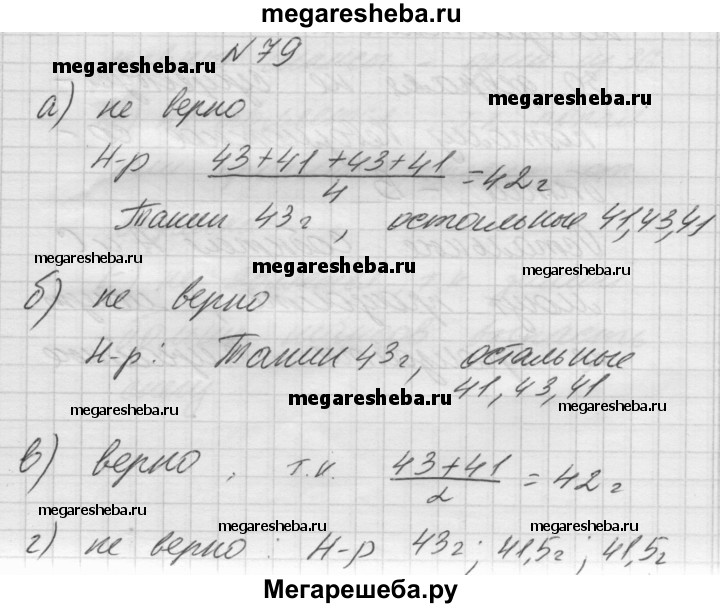 megaresheba.ru
№79
megaresheba.ru
а) не верно
megaresheba.ru
Н-р (43+41+43+41)/4 = 42 г
Танин 43 г, остальные 41, 43, 41
megaresheba.ru megaresheba.ru megaresheba.ru
б) не верно
Н-р: Танин 43 г, остальные
41, 43, 41
megaresheba.ru megaresheba.ru megaresheba.ru
в) верно, т.к. (43+41)/2 = 42 г
megaresheba.ru megaresheba.ru megaresheba.ru
г) не верно: Н-р 43 г; 41,5 г; 41,5 г
Мегарешеба.ру